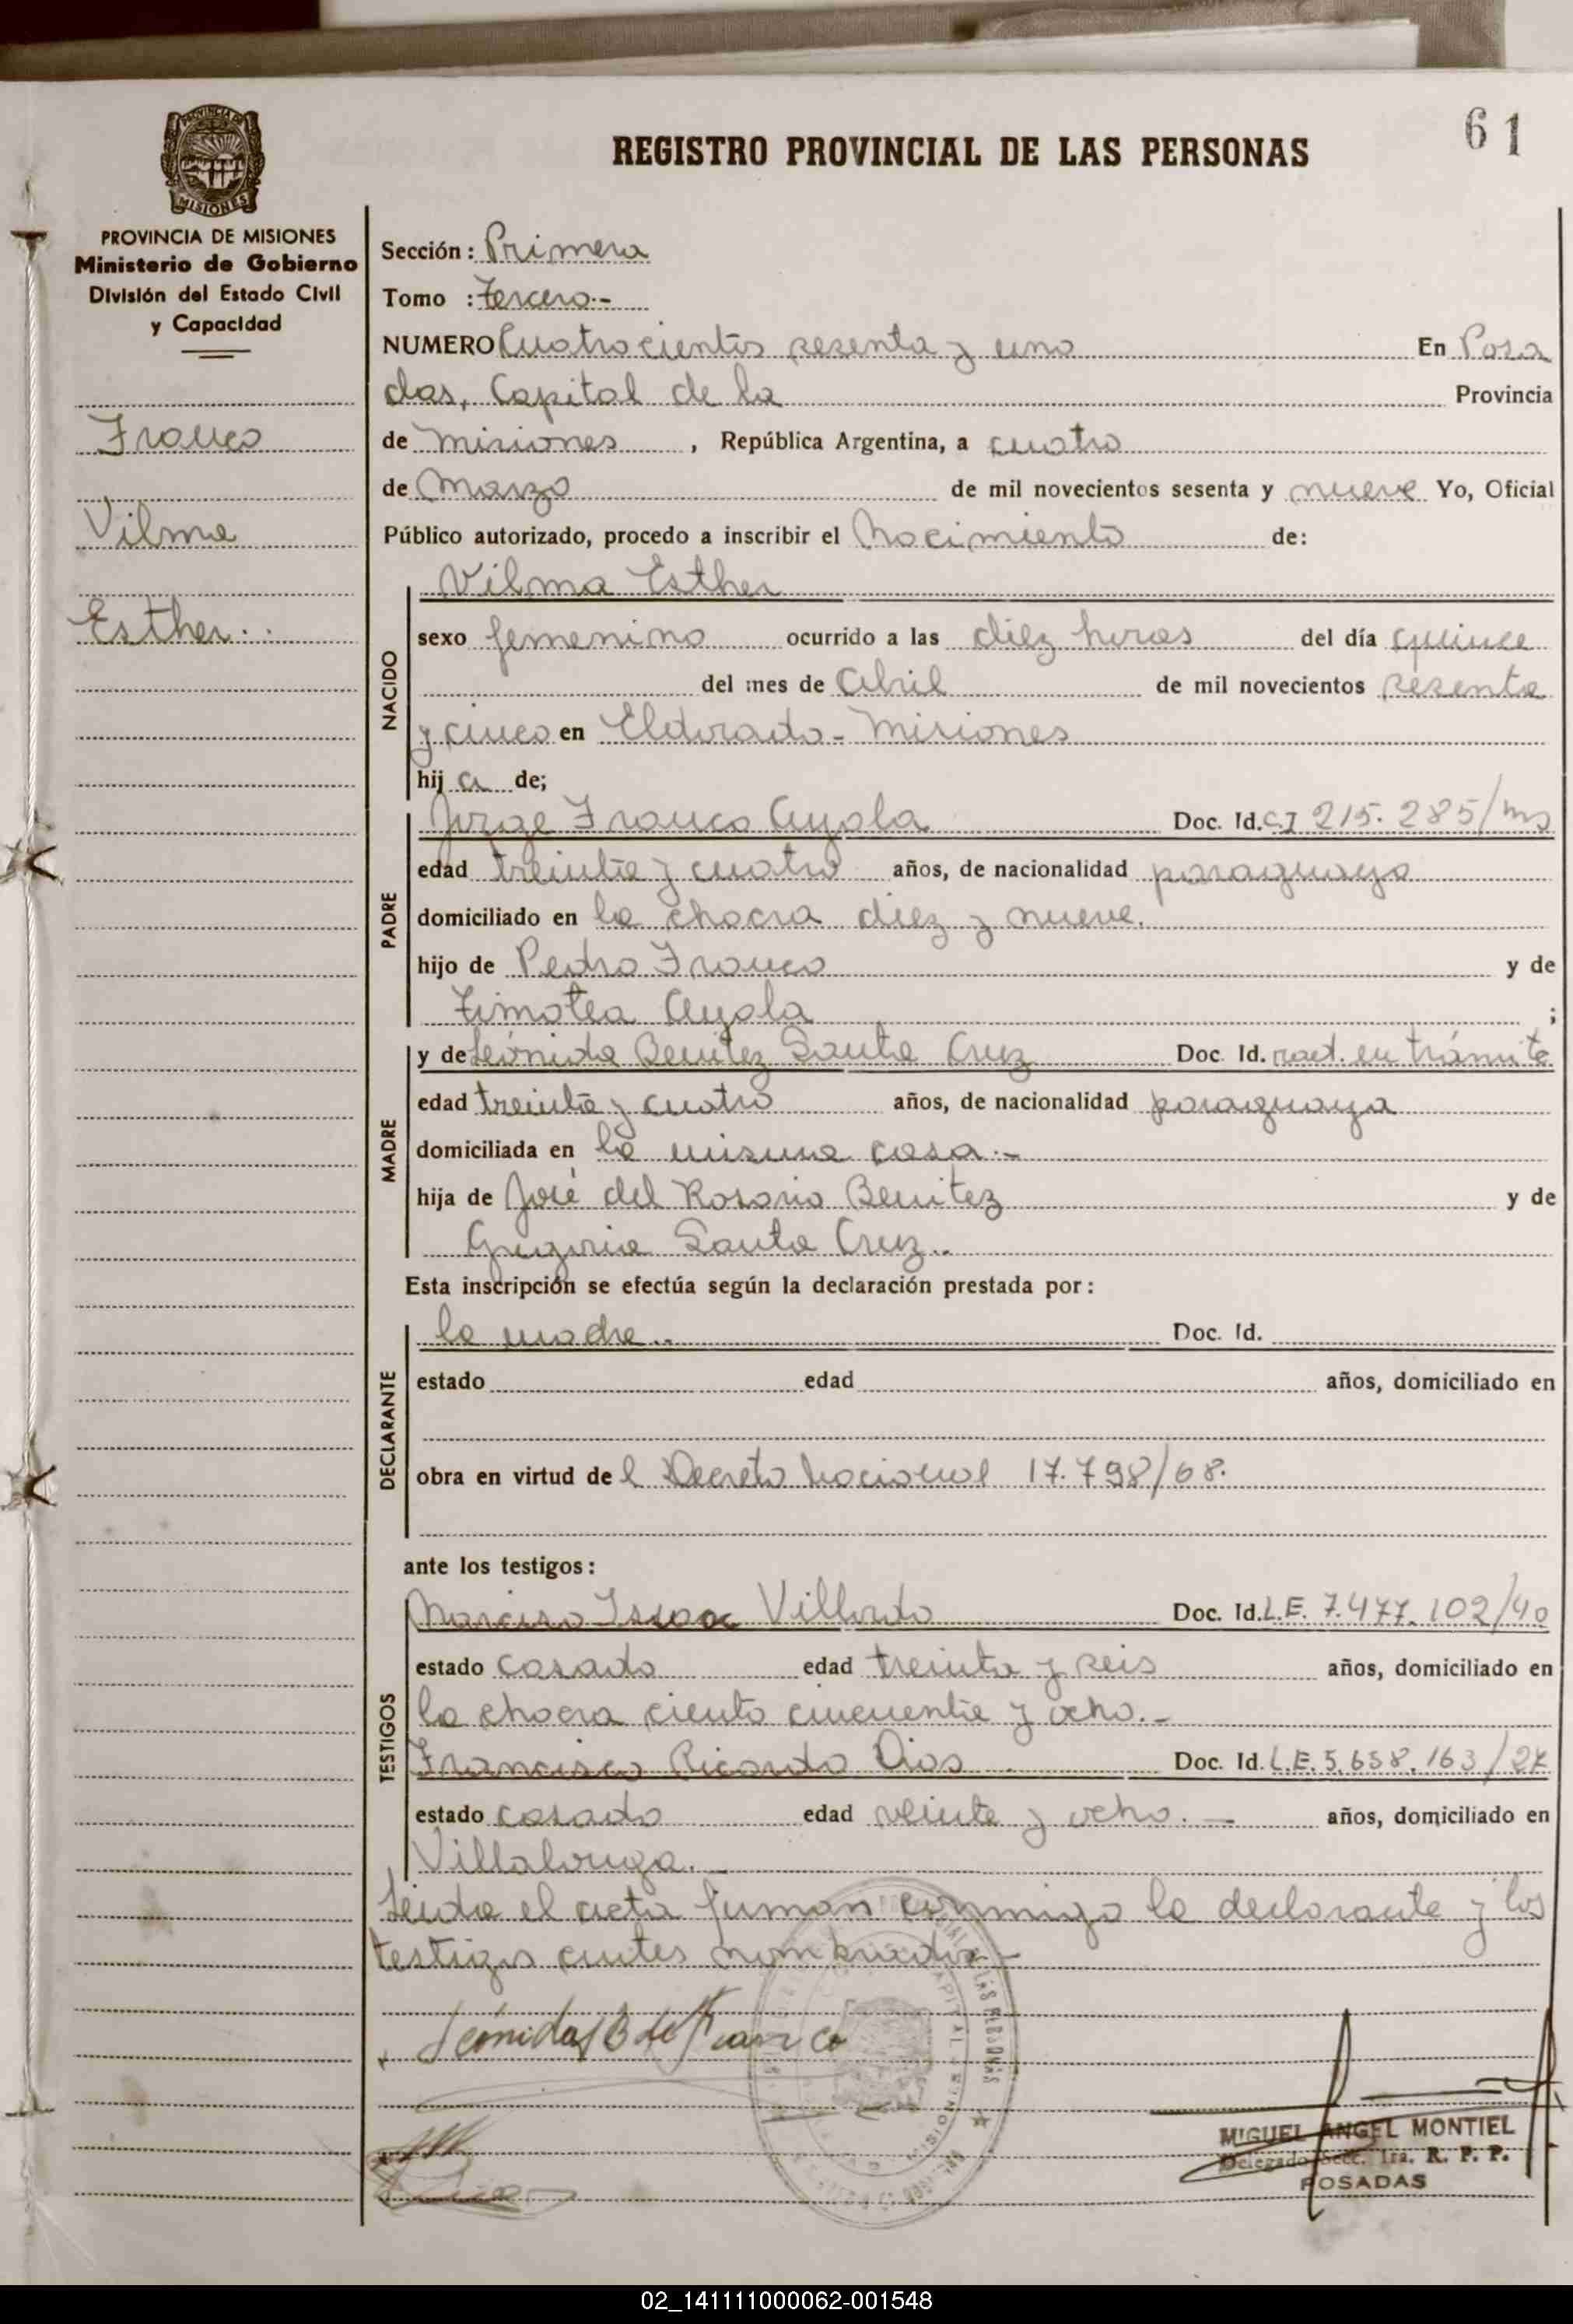 61
REGISTRO PROVINCIAL DE LAS PERSONAS
PROVINCIA DE MISIONES
Ministerio de Gobierno
División del Estado Civil
y Capacidad
Franco
Vilma
Esther..
Sección: Primera
Tomo : Tercero.-
NUMERO Cuatrocientos sesenta y uno En Posa
das, Capital de la Provincia
de Misiones, República Argentina, a cuatro
de Marzo de mil novecientos sesenta y nueve Yo, Oficial
Público autorizado, procedo a inscribir el Nacimiento de:
NACIDO
Vilma Esther
sexo femenino ocurrido a las diez horas del día quince
del mes de Abril de mil novecientos sesenta
y cinco en Eldorado - Misiones
hija de;
PADRE
Jorge Franco Ayala Doc. Id. C.I 215.285/ms
edad treinta y cuatro años, de nacionalidad paraguayo
domiciliado en la chacra diez y nueve.
hijo de Pedro Franco y de
Timotea Ayala ;
MADRE
y de Leónida Benitez Santa Cruz Doc. Id. rad. en trámite
edad treinta y cuatro años, de nacionalidad paraguaya
domiciliada en la misma casa.-
hija de José del Rosario Benitez y de
Gregoria Santa Cruz..
Esta inscripción se efectúa según la declaración prestada por:
DECLARANTE
la madre.. Doc. Id.
estado edad años, domiciliado en
obra en virtud del Decreto Nacional 17.798/68.
ante los testigos:
TESTIGOS
Narciso Isaac Villordo Doc. Id. L.E. 7.477.102/40
estado casado edad treinta y seis años, domiciliado en
la chacra ciento cincuenta y ocho.-
Francisco Ricardo Dios Doc. Id. L.E. 5.658.163/27
estado casado edad veinte y ocho.- años, domiciliado en
Villalonga.-
Leida el acta firman conmigo la declarante y los
testigos antes nombrados-
Leónidas B de Franco
MIGUEL ANGEL MONTIEL
Delegado Secc. 1ra. R. P. P.
POSADAS
02_141111000062-001548